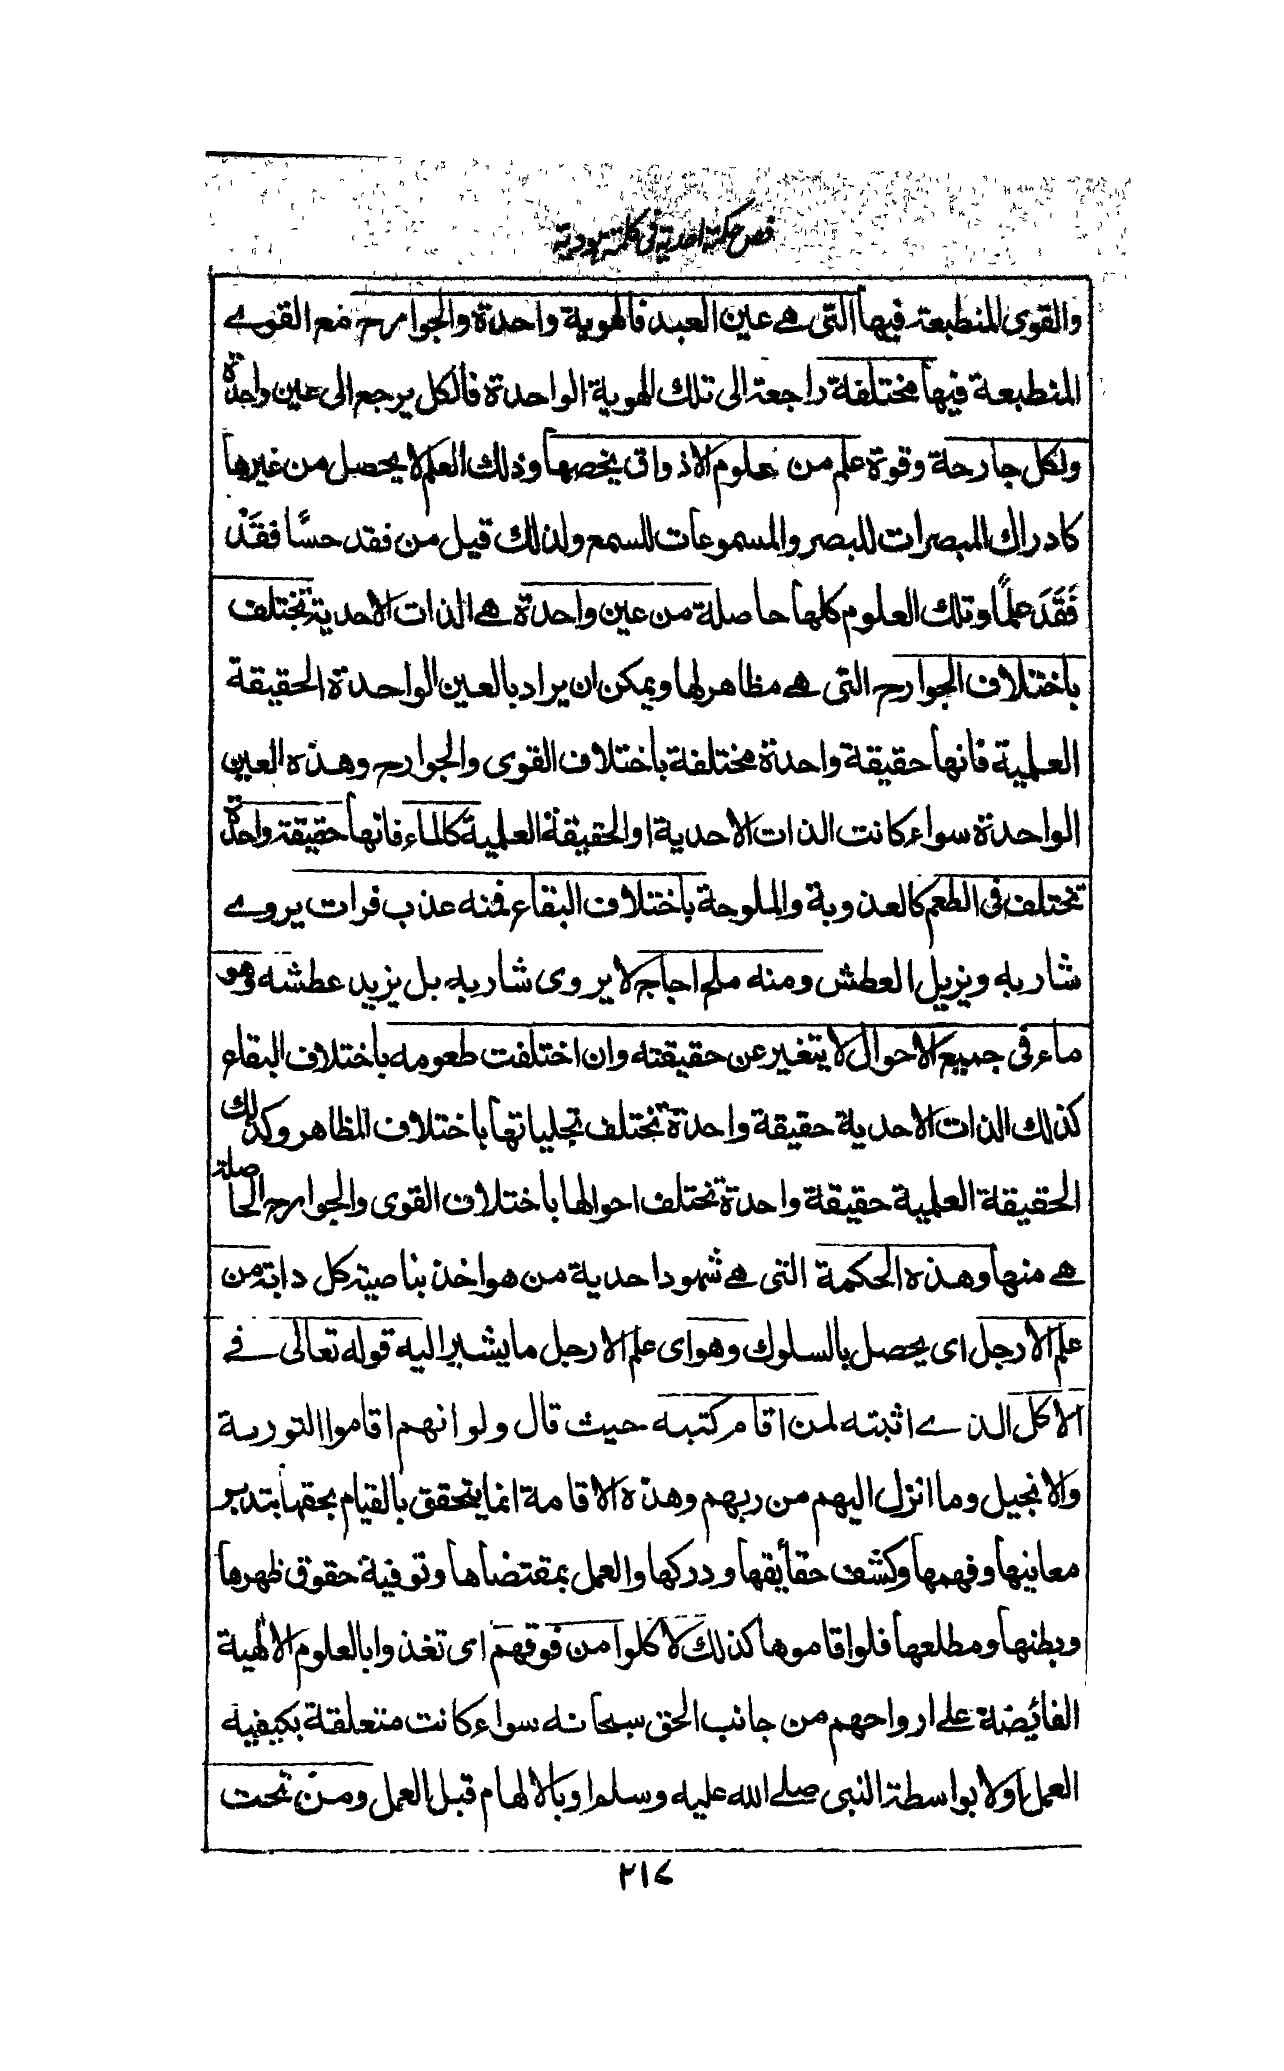 فص حكمة احدية في كلمة هودية
والقوى المنطبعة فيها التي هے عين العبد فالهوية واحدة والجوارح مع القوے
المنطبعة فيها مختلفة راجعة الى تلك الهوية الواحدة فالكل يرجع الى عين واحدة
ولكل جارحة وقوة علم من علوم الاذواق يخصها وذلك العلم لا يحصل من غيرها
كادراك المبصرات للبصر والمسموعات للسمع ولذلك قيل من فقد حسًا فقَدْ
فَقَدَ علمًا وتلك العلوم كلها حاصلة من عين واحدة هے الذات الاحدية تختلف
باختلاف الجوارح التي هے مظاهر لها ويمكن ان يراد بالعين الواحدة الحقيقة
العلمية فانها حقيقة واحدة مختلفة باختلاف القوى والجوارح وهذه العين
الواحدة سواء كانت الذات الاحدية او الحقيقة العلمية كالماء فانها حقيقة واحدة
تختلف في الطعم كالعذوبة والملوحة باختلاف البقاع فمنه عذب فرات يروے
شاربه ويزيل العطش ومنه ملح اجاج لا يروى شاربه بل يزيد عطشه وهو
ماء في جميع الاحوال لا يتغير عن حقيقته وان اختلفت طعومه باختلاف البقاع
كذلك الذات الاحدية حقيقة واحدة تختلف تجلياتها باختلاف المظاهر وكذلك
الحقيقة العلمية حقيقة واحدة تختلف احوالها باختلاف القوى والجوارح الحاصلة
هے منها وهذه الحكمة التي هے شهود احدية من هو اخذ بناصية كل دابة من
علم الارجل اى يحصل بالسلوك وهو اى علم الارجل ما يشير اليه قوله تعالى في
الاكل الذے اثبته لمن اقام كتبه حيث قال ولو انهم اقاموا التورية
والانجيل وما انزل اليهم من ربهم وهذه الاقامة انما يتحقق بالقيام بحقها بتدبر
معانيها وفهمها وكشف حقايقها ودركها والعمل بمقتضاها وتوفية حقوق ظهرها
وبطنها ومطلعها فلو اقاموها كذلك لاكلوا من فوقهم اى تغذوا بالعلوم الالهية
الفائضة على ارواحهم من جانب الحق سبحانه سواء كانت متعلقة بكيفية
العمل اولا بواسطة النبي صلے الله عليه وسلم او بالالهام قبل العمل ومن تحت
٢١٤